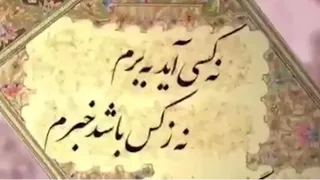 نه کسی آید به برم
نه ز کس باشد خبرم